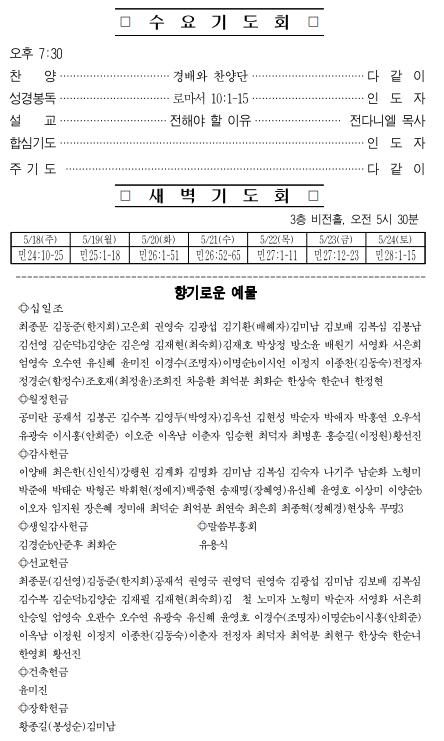 □ 수 요 기 도 회 □
오후 7:30
찬 양 ······ 경배와 찬양단 ······ 다 같 이
성경봉독 ······ 로마서 10:1-15 ······ 인 도 자
설 교 ······ 전해야 할 이유 ······ 전다니엘 목사
합심기도 ······ 인 도 자
주 기 도 ······ 다 같 이
□ 새 벽 기 도 회 □
3층 비전홀, 오전 5시 30분
5/18(주) 5/19(월) 5/20(화) 5/21(수) 5/22(목) 5/23(금) 5/24(토)
민24:10-25 민25:1-18 민26:1-51 민26:52-65 민27:1-11 민27:12-23 민28:1-15
향기로운 예물
◎십일조
최종문 김동준(한지희)고은희 권영숙 김광섭 김기환(배혜자)김미남 김보배 김복심 김봉남
김선영 김순덕b김양순 김은영 김재현(최숙희)김재호 박상정 방소윤 배원기 서영화 서은희
엄영숙 오수연 유신혜 윤미진 이경수(조명자)이명순b이시언 이정지 이종찬(김동숙)전정자
정경순(함정수)조호재(최정윤)조희진 차응환 최억분 최화순 한상숙 한순녀 한정현
◎월정헌금
공미란 공재석 김봉곤 김수복 김영두(박영자)김옥선 김현성 박순자 박애자 박홍연 오우석
유광숙 이시홍(안희준) 이오준 이옥남 이춘자 임승현 최덕자 최병훈 홍승길(이정원)황선진
◎감사헌금
이양배 최은한(신인식)강행원 김계화 김명화 김미남 김복심 김숙자 나기주 남순화 노형미
박준애 박태순 박형곤 박휘현(정예지)백중현 송재명(장혜영)유신혜 윤영호 이상미 이양순b
이오자 임지원 장은혜 정미애 최덕순 최억분 최연숙 최은희 최종혁(정혜경)현상옥 무명3
◎생일감사헌금 ◎말씀부흥회
김경순b안준후 최화순 유용식
◎선교헌금
최종문(김선영)김동준(한지희)공재석 권영국 권영덕 권영숙 김광섭 김미남 김보배 김복심
김수복 김순덕b김양순 김재필 김재현(최숙희)김 철 노미자 노형미 박순자 서영화 서은희
안승일 엄영숙 오관수 오수연 유광숙 유신혜 윤영호 이경수(조명자)이명순b이시홍(안희준)
이옥남 이정원 이정지 이종찬(김동숙)이춘자 전정자 최덕자 최억분 최현구 한상숙 한순녀
한영희 황선진
◎건축헌금
윤미진
◎장학헌금
황종길(봉성순)김미남